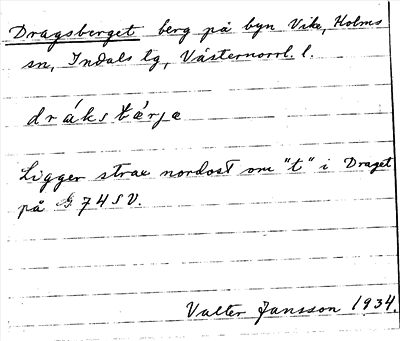 Dragsberget berg på byn Vike, Holms
sn, Indals tg, Västernorrl. l.
dráks tárja
Ligger strax nordost om "t" i Draget
på G 74 SV.
Valter Jansson 1934.